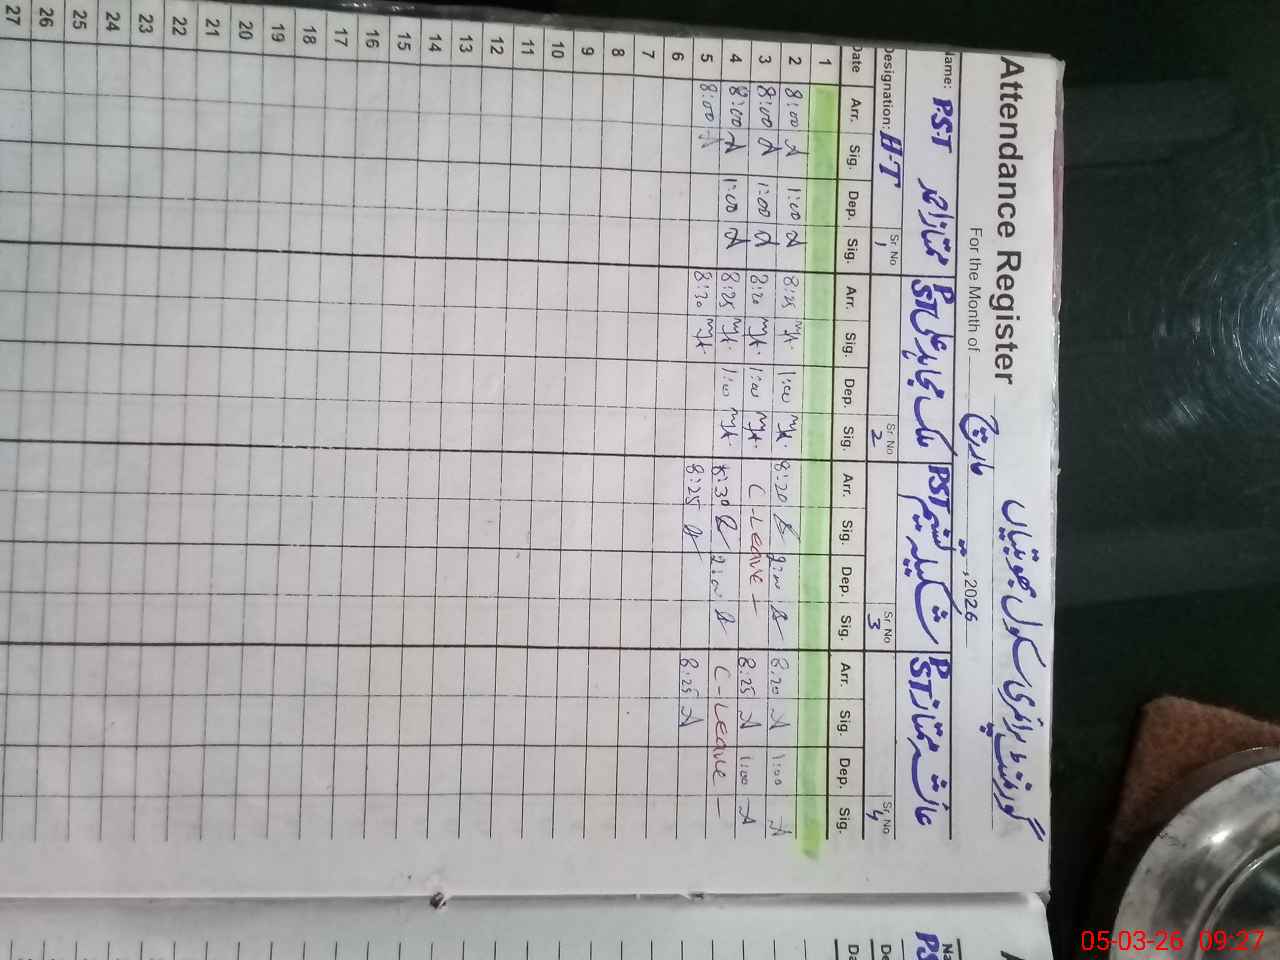 Attendance Register گورنمنٹ پرائمری سکول
For the Month of مارچ , 2026
Name: P.S.T ممتاز احمد PST ملک مجاہد علی PST شکیلہ PST عائشہ ممتاز
Designation: H-T Sr. No 1 Sr. No 2 Sr. No 3 Sr. No 4
Date Arr. Sig. Dep. Sig. Arr. Sig. Dep. Sig. Arr. Sig. Dep. Sig. Arr. Sig. Dep. Sig.
1
2 8:00 1:00 8:25 1:00 8:20 2:00 8:20 1:00
3 8:00 1:00 8:20 1:00 C-Leave - 8:25 1:00
4 8:00 1:00 8:25 1:00 8:30 2:00 C-Leave -
5 8:00 8:30 8:25 8:25
6
7
8
9
10
11
12
13
14
15
16
17
18
19
20
21
22
23
24
25
26
27
05-03-26 09:27